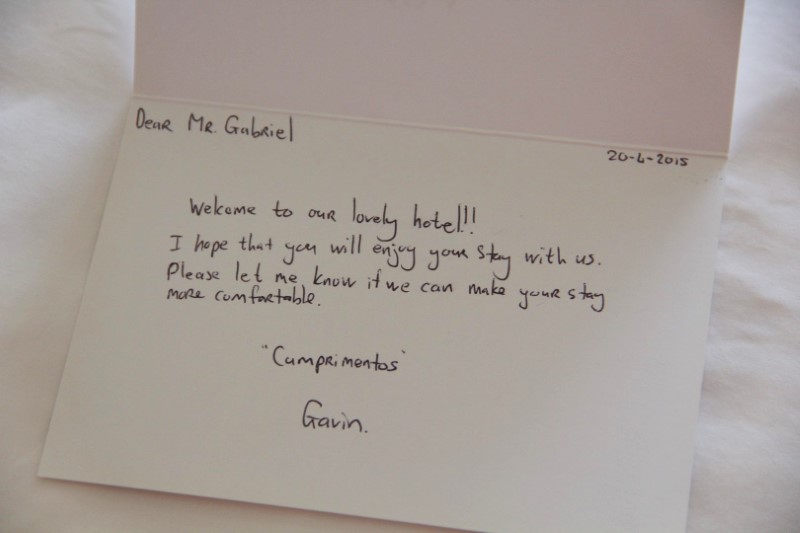 Dear Mr. Gabriel
20-4-2015
Welcome to our lovely hotel!!
I hope that you will enjoy your stay with us.
Please let me know if we can make your stay
more comfortable.
"Cumprimentos"
Gavin.